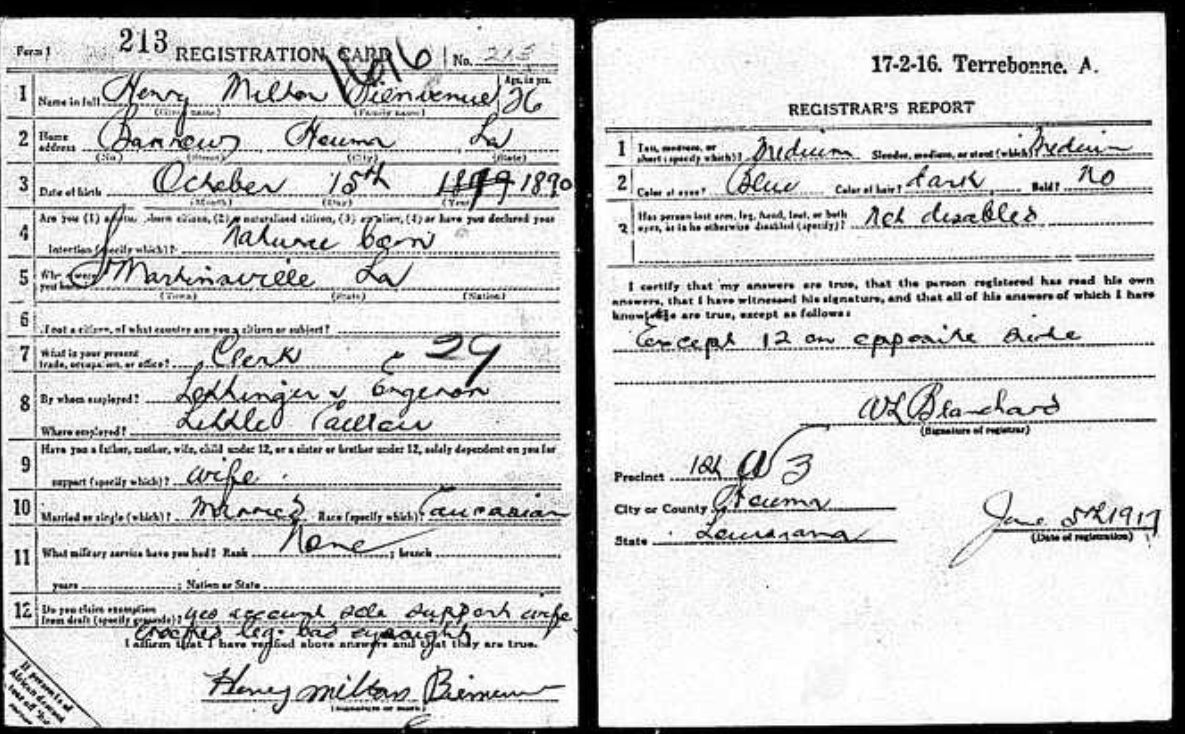 Form 1 213 REGISTRATION CARD No. 213
1616
1 Name in full Henry Milton Bienvenue Age, in yrs. 26
(Given name) (Family name)
2 Home address Barrow Houma La
(No.) (Street) (City) (State)
3 Date of birth October 15th 1899 1890
(Month) (Year)
4 Are you (1) a natural-born citizen, (2) a naturalized citizen, (3) an alien, (4) or have you declared your
intention (specify which)? natural born
5 Where were you born? St Martinsville La
(Town) (State) (Nation)
6 If not a citizen, of what country are you a citizen or subject?
7 What is your present trade, occupation, or office? Clerk 29
8 By whom employed? Engeron
Where employed? Little Caillou
9 Have you a father, mother, wife, child under 12, or a sister or brother under 12, solely dependent on you for
support (specify which)? wife
10 Married or single (which)? Married Race (specify which)? Caucasian
11 What military service have you had? Rank None ; branch
years ; Nation or State
12 Do you claim exemption from draft (specify grounds)? yes account sole support wife
crooked leg. bad eyesight
I affirm that I have verified above answers and that they are true.
Henry Milton Bienvenue
(Signature or mark)
If person is of African descent, tear off this corner
17-2-16. Terrebonne. A.
REGISTRAR'S REPORT
1 Tall, medium, or short (specify which)? Medium Slender, medium, or stout (which)? Medium
2 Color of eyes? Blue Color of hair? dark Bald? no
3 Has person lost arm, leg, hand, foot, or both eyes, or is he otherwise disabled (specify)? not disabled
I certify that my answers are true, that the person registered has read his own
answers, that I have witnessed his signature, and that all of his answers of which I have
knowledge are true, except as follows:
Except 12 on opposite side
WL Blanchard
(Signature of registrar)
Precinct 1st W 3
City or County Houma
State Louisiana
June 5th 1917
(Date of registration)